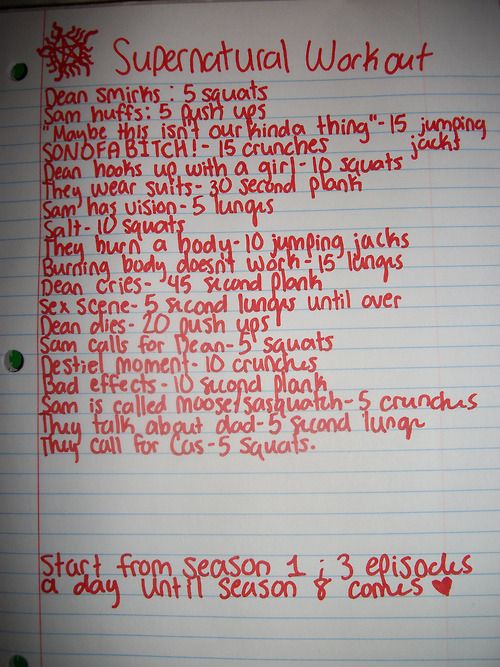 Supernatural Workout
Dean smirks: 5 squats
Sam huffs: 5 push ups
"Maybe this isn't our kinda thing"-15 jumping jacks
SONOFABITCH!-15 crunches
Dean hooks up with a girl-10 squats
They wear suits-30 second plank
Sam has vision-5 lunges
Salt-10 squats
They burn a body-10 jumping jacks
Burning body doesn't work-15 lunges
Dean cries- 45 second plank
sex scene-5 second lunges until over
Dean dies-20 push ups
Sam calls for Dean-5 squats
Destiel moment-10 crunches
Bad effects-10 second plank
Sam is called moose/sasquatch-5 crunches
They talk about dad-5 second lunge
They call for Cas-5 squats.
Start from season 1 ; 3 episodes
a day until season 8 comes ♥